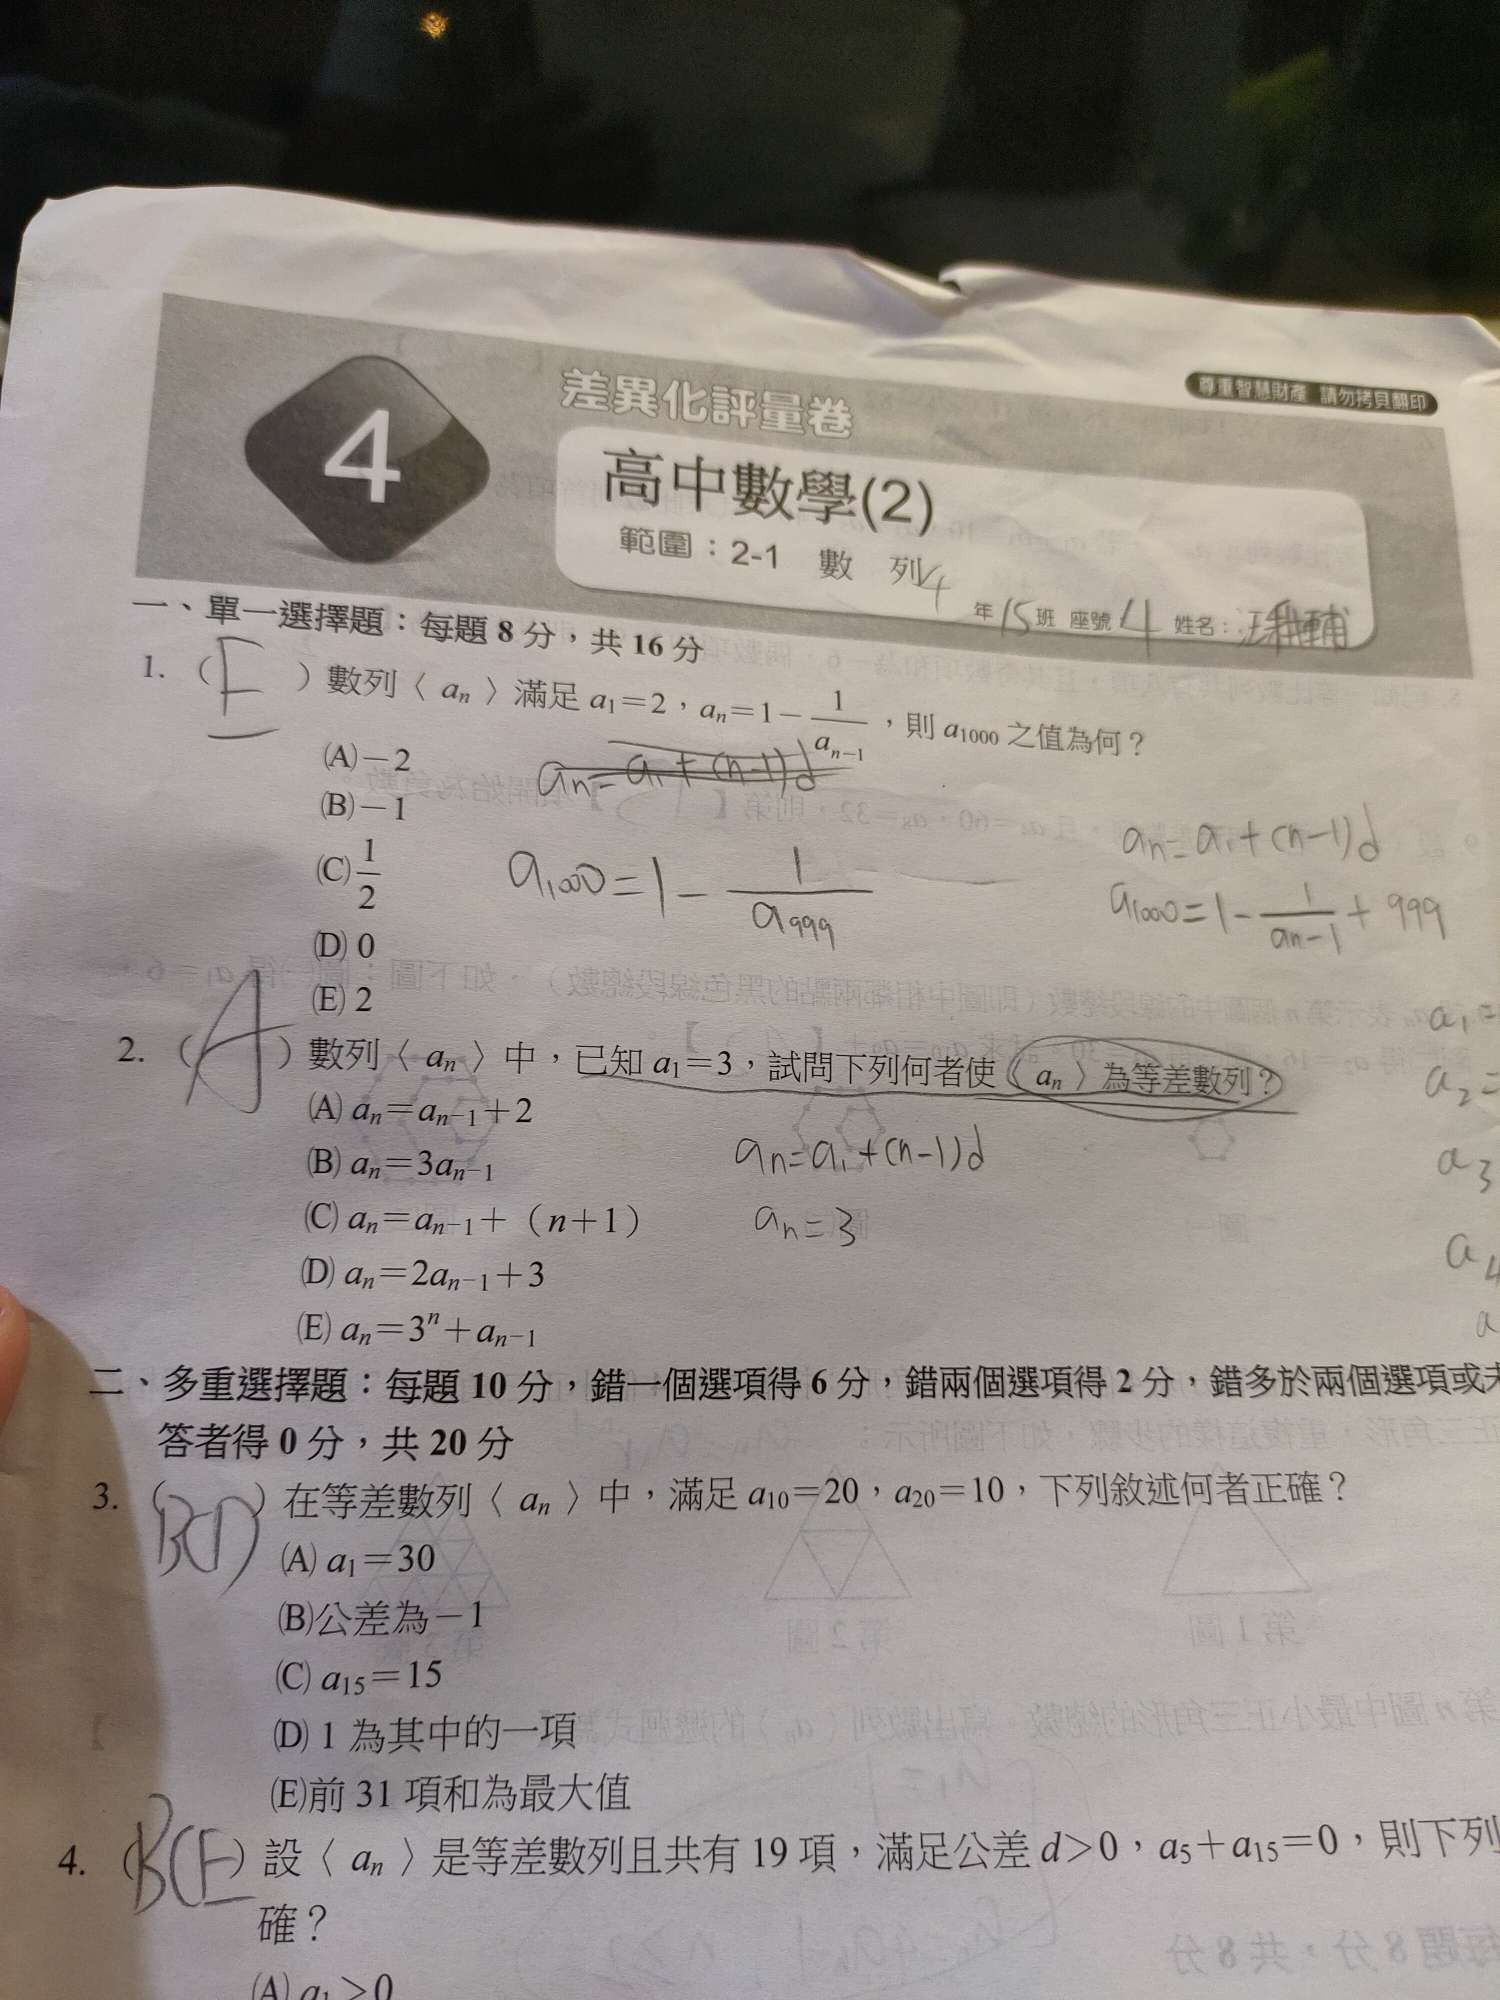 尊重智慧財產 請勿拷貝翻印
4
差異化評量卷
高中數學(2)
範圍：2-1 數 列
年15班 座號 14 姓名：
一、單一選擇題：每題 8 分，共 16 分
1. ( E ) 數列〈 an 〉滿足 a1＝2，an＝1－1/an−1，則 a1000 之值為何？
an=a1+(n-1)d
(A)－2
(B)－1
an=a1+(n-1)d
(C) 1/2
a1000=1-1/a999
a1000=1-1/an-1+999
(D) 0
(E) 2
a1=
2. ( A ) 數列〈 an 〉中，已知 a1＝3，試問下列何者使〈 an 〉為等差數列？
a2=
(A) an＝an−1＋2
an=a1+(n-1)d
(B) an＝3an−1
a3
(C) an＝an−1＋（n＋1）
an=3
(D) an＝2an−1＋3
a4
(E) an＝3^n＋an−1
a
二、多重選擇題：每題 10 分，錯一個選項得 6 分，錯兩個選項得 2 分，錯多於兩個選項或未
答者得 0 分，共 20 分
3. ( BCD ) 在等差數列〈 an 〉中，滿足 a10＝20，a20＝10，下列敘述何者正確？
(A) a1＝30
(B)公差為－1
(C) a15＝15
(D) 1 為其中的一項
(E)前 31 項和為最大值
4. ( BCE ) 設〈 an 〉是等差數列且共有 19 項，滿足公差 d＞0，a5＋a15＝0，則下列
確？
(A) a1＞0